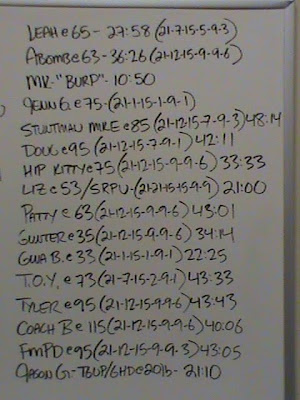 LEAH @ 65 - 27:58 (21-7-15-5-9-3)
ABOMB @ 63 - 36:26 (21-12-15-9-9-6)
MR. "BURP" - 10:50
JENN G. @ 75 - (21-1-15-1-9-1)
STUNTMAN MIKE @ 85 (21-12-15-7-9-3) 48:14
DOUG @ 95 (21-12-15-7-9-1) 42:11
HIP KITTY @ 75 (21-12-15-9-9-6) 33:33
LIZ @ 53/SRPU - (21-21-15-15-9-9) 21:00
PATTY @ 63 (21-12-15-9-9-6) 43:01
GUNTER @ 35 (21-12-15-9-9-6) 34:14
GINA B. @ 33 (21-1-15-1-9-1) 22:25
T.O.Y. @ 73 (21-7-15-2-9-1) 43:33
TYLER @ 95 (21-12-15-9-9-6) 43:43
COACH B @ 115 (21-12-15-9-9-6) 40:06
FMPD @ 95 (21-12-15-9-9-3) 43:05
JASON G. - TBUP/GHD @ 20/15 - 21:10